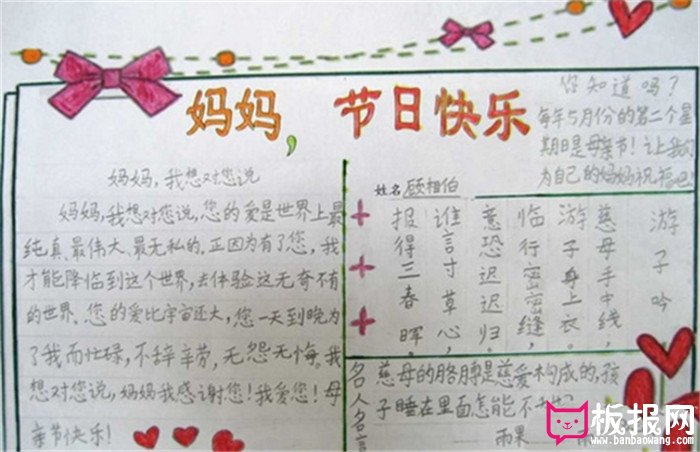 妈妈，节日快乐
你知道吗？
每年5月份的第二个星
期日是母亲节！让我们
为自己的妈妈祝福吧！
妈妈，我想对您说
妈妈，我想对您说，您的爱是世界上最
纯真、最伟大、最无私的。正因为有了您，我
才能降临到这个世界，去体验这无奇不有
的世界。您的爱比宇宙还大，您一天到晚为
了我而忙碌，不辞辛劳，无怨无悔。我
想对您说，妈妈我感谢您！我爱您！母
亲节快乐！
姓名 顾相伯
游子吟
慈母手中线，
游子身上衣。
临行密密缝，
意恐迟迟归。
谁言寸草心，
报得三春晖。
名人名言
慈母的胳膊是慈爱构成的，孩
子睡在里面怎能不
雨果
板报网
www.banbaowang.com